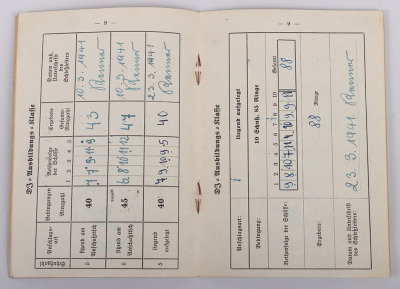 — 8 —
DJ = Ausbildungs = Klasse
Schußzahl
Anschlags-
art
Bedingungen
Ringzahl
Reihenfolge
der Schüsse
1 2 3 4 5
Ergebnis
Gesamt-
Ringzahl
Datum und
Unterschrift
des Schießleiters
5
sitzend am
Anschußtisch
40
7 7 9 11 9
43
10. 3. 1941
5
sitzend am
Anschußtisch
45
6 8 10 11 12
47
10. 3. 1941
5
liegend
aufgelegt
40
7 9 10 9 5
40
23. 3. 1941
— 9 —
DJ = Ausbildungs = Klasse
Anschlagart:
liegend aufgelegt
Bedingung:
10 Schuß, 85 Ringe
Reihenfolge der Schüsse:
1 2 3 4 5 6 7 8 9 10 Gesamt
88
Ergebnis:
88 Ringe
Datum und Unterschrift
des Schießleiters:
23. 3. 1941